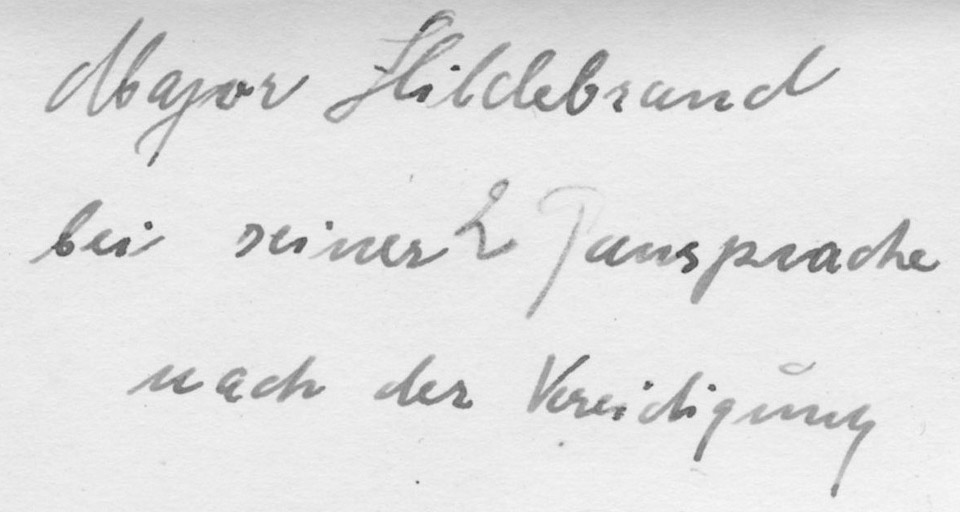 Major Hildebrand
bei seiner Ansprache
nach der Vereidigung